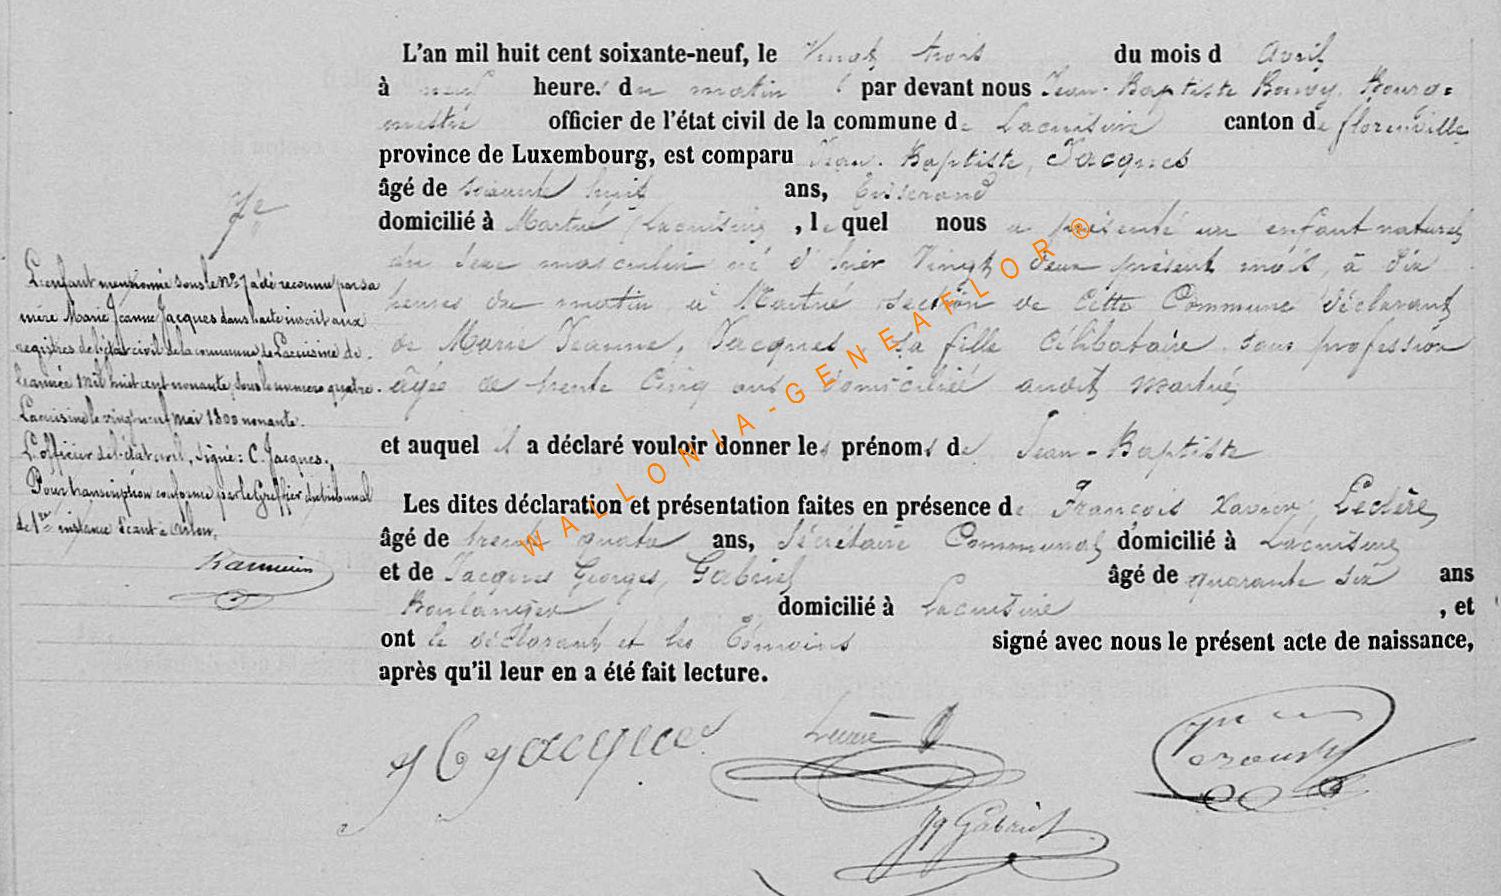 L'an mil huit cent soixante-neuf, le Vingt trois du mois d Avril
à neuf heures du matin par devant nous Jean-Baptiste Bourg-
mestre officier de l'état civil de la commune de Lacuisine canton de florenville
province de Luxembourg, est comparu Jean-Baptiste, Jacques
âgé de soixante huit ans, Tisserand
domicilié à Martué Lacuisine, lequel nous a présenté un enfant naturel
du sexe masculin né d'hier Vingt deux présent mois, à dix
heures du matin à Martué section de cette Commune déclarant
de Marie Jeanne, Jacques, sa fille Célibataire sans profession
âgée de trente cinq ans domiciliée audit Martué
et auquel il a déclaré vouloir donner les prénoms de Jean-Baptiste
Les dites déclaration et présentation faites en présence de François Xavier Leclère
âgé de trente quatre ans, Sécrétaire Communal domicilié à Lacuisine
et de Jacques Georges, Gabriel âgé de quarante six ans
Boulanger domicilié à Lacuisine, et
ont le déclarant et les Témoins signé avec nous le présent acte de naissance,
après qu'il leur en a été fait lecture.
7e
L'enfant mentionné sous le No 7 a été reconnu par sa
mère Marie Jeanne Jacques dans l'acte inscrit aux
registres de l'état civil de la commune de Lacuisine de
l'année mil huit cent nonante sous le numéro quatre.
Lacuisine le vingt neuf mai 1800 nonante.
L'officier de l'état civil, Signé: C. Jacques.
Pour transcription conforme par le Greffier du tribunal
de 1re instance séant à Arlon,
J B Jacques
Jq Gabriel
WALLONIA-GENEAFLOR®